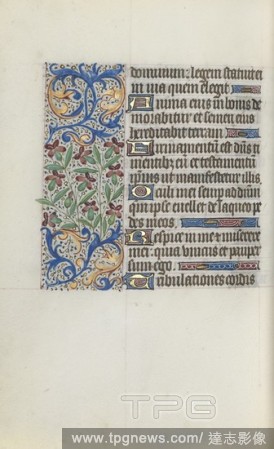 dominum: legem statuit ei
in via quem elegit
Anima eius in bonis de
morabitur et semen eius
hereditabit terram
Firmamentum est dñs ti
mentibus eū et testamentū
ipsius ut manifestetur illis
Oculi mei semp ad dñm
qm ipse evellet de laqueo pe
des meos
Respice in me et miserere
mei: quia unicus et pauper
sum ego
Tribulationes cordis
TPG
www.tpgnews.com/達志影像